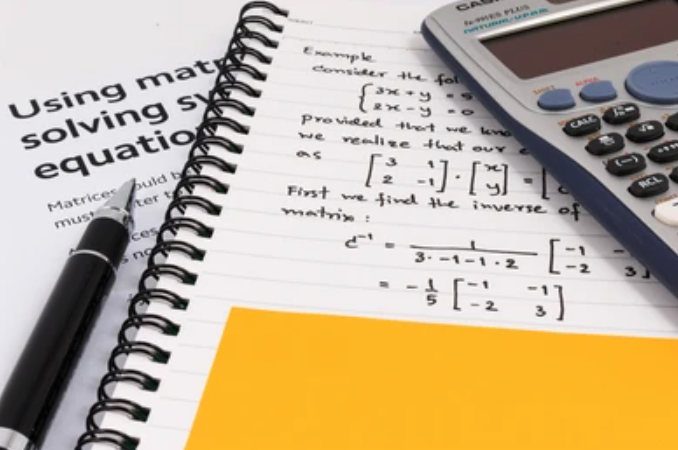 Using matr
solving sy
equatio
Matrices
must
Example
Consider the fol
3x + y = 5
2x - y = 0
provided that we kno
we realize that our
as [3 1 2 -1] · [x y] = [
First we find the inverse of
matrix:
c⁻¹ = 1 / 3· -1 -1 · 2 [-1 - -2 3]
= - 1/5 [-1 -1 -2 3]
CASIO
fx-991ES PLUS
NATURAL-V.P.A.M.
SHIFT ALPHA
CALC
(-)
RCL